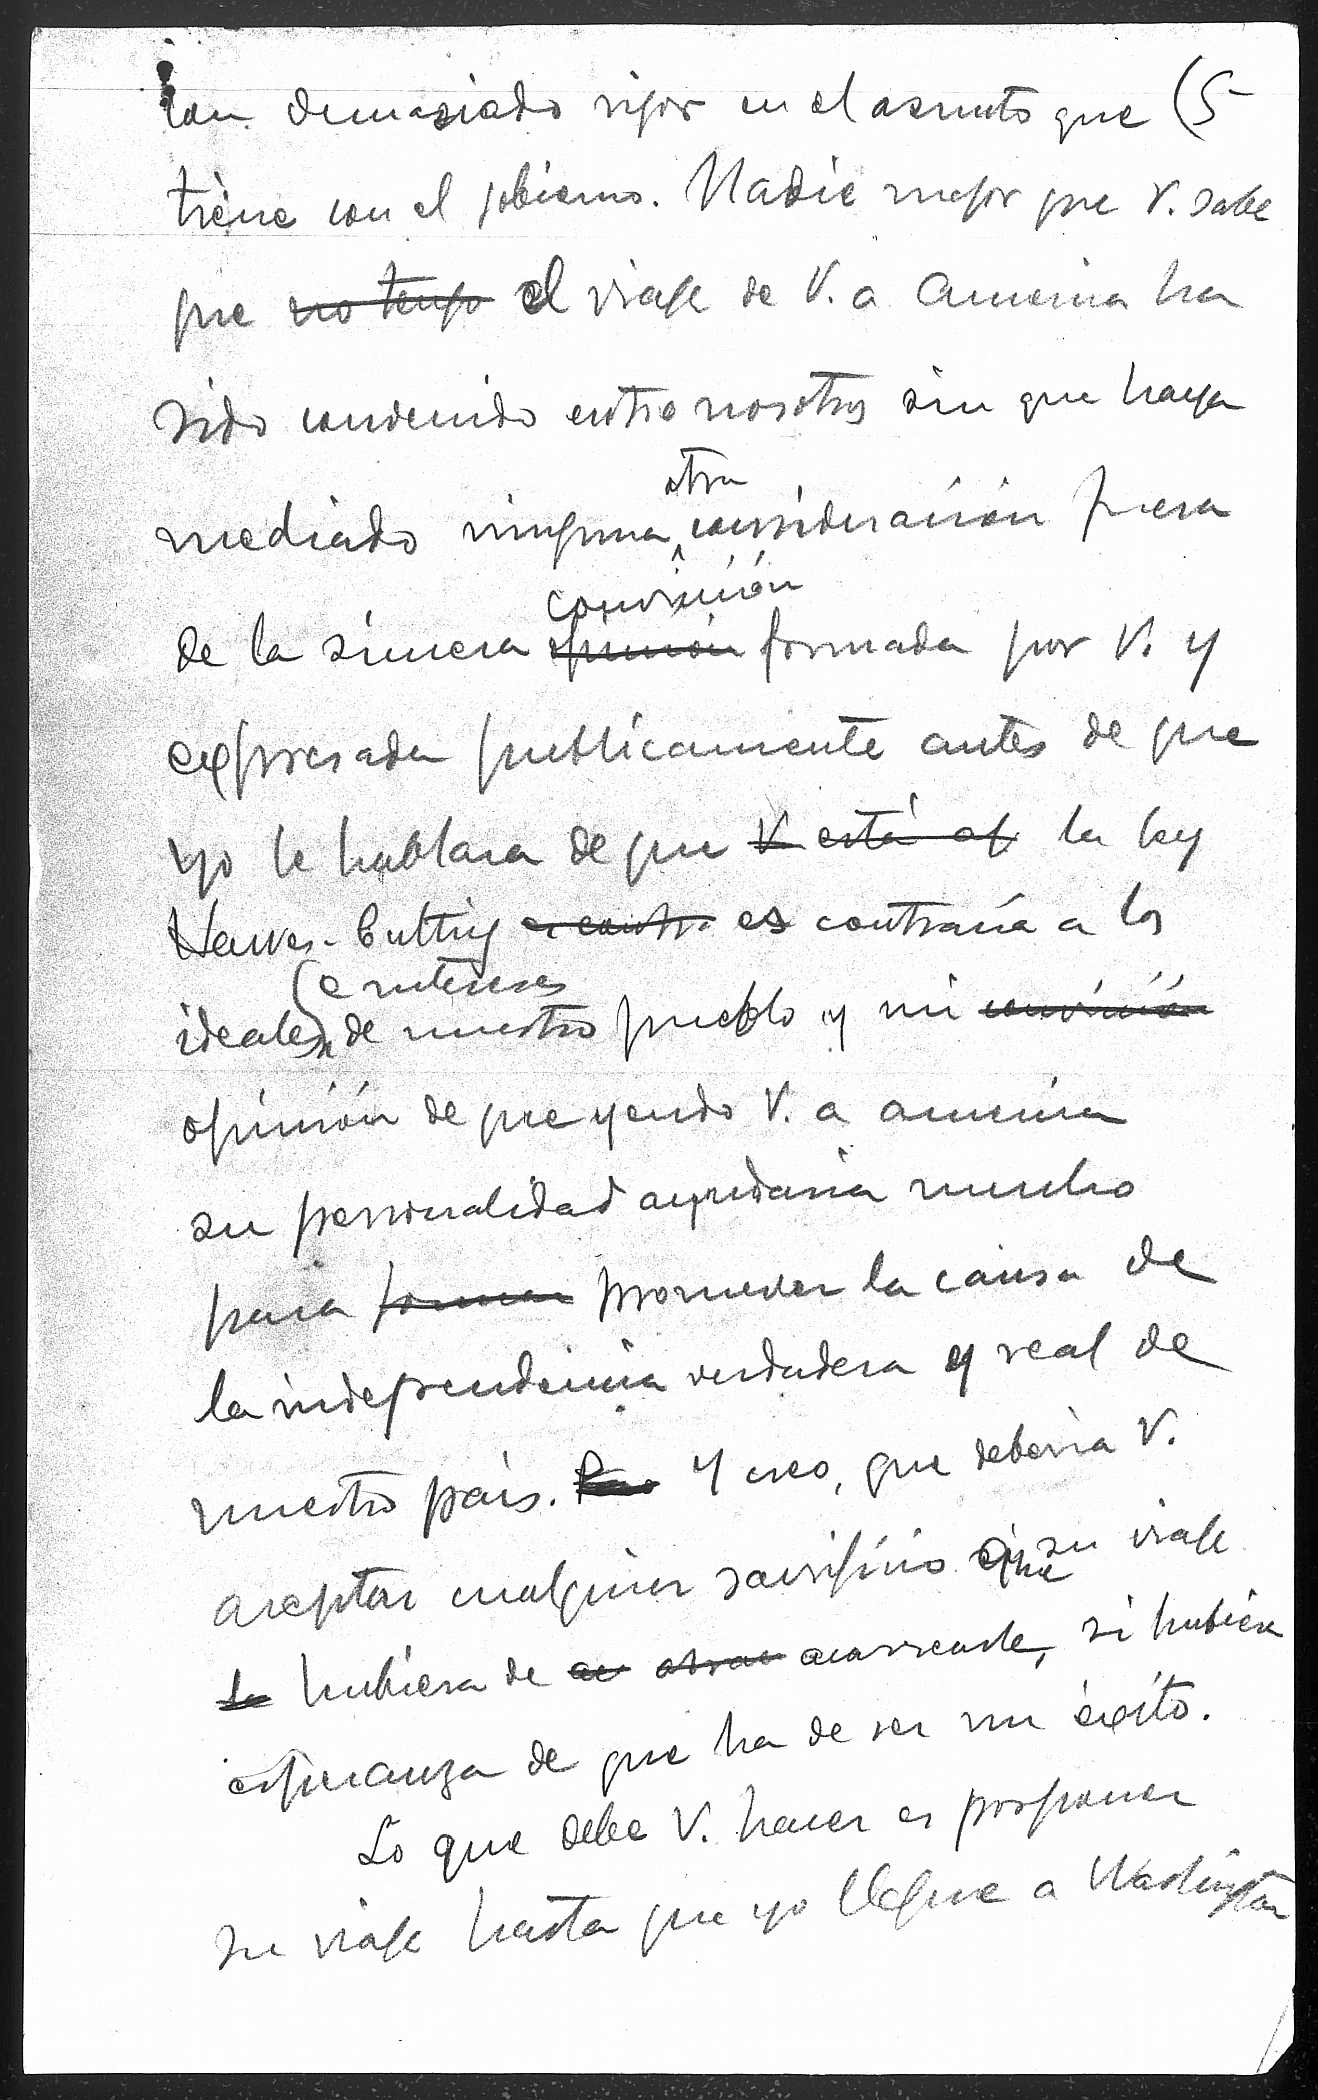 con demasiado rigor en el asunto que (5
tiene con el gobierno. Nadie mejor que V. sabe
que no tengo el viaje de V. a America ha
sido convenido entre nosotros sin que haya
otra
mediado ninguna consideración fuera
convicción
de la sincera opinión formada por V. y
expresada publicamente antes de que
yo le hablara de que V está la ley
Hawes-Cutting es contra es contraria a los
e intereses
ideales de nuestro pueblo y mi convicción
opinión de que yendo V. a america
su personalidad ayudaria mucho
para formar promover la causa de
la independencia verdadera y real de
nuestro pais. Y creo, que deberia V.
aceptar cualquier sacrificio que su viaje
le hubiera de acarrearle, si hubiera
esperanza de que ha de ser un éxito.
Lo que debe V. hacer es posponer
su viaje hasta que yo llegue a Washington